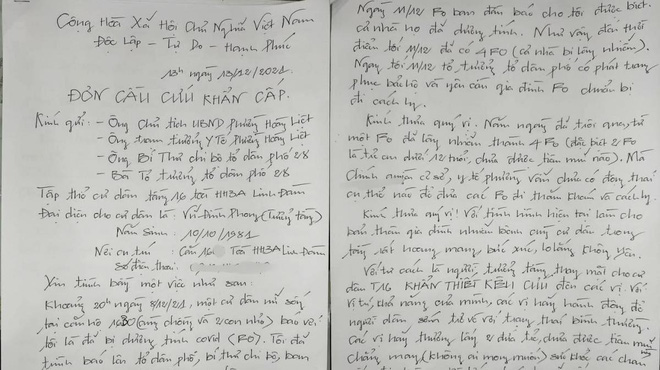 Cộng Hòa Xã Hội Chủ Nghĩa Việt Nam
Độc Lập - Tự Do - Hạnh Phúc
13h ngày 13/12/2021.
ĐƠN CẦU CỨU KHẨN CẤP.
Kính gửi: - Ông Chủ tịch UBND phường Hoàng Liệt
- Ông trạm trưởng Y Tế phường Hoàng Liệt
- Ông Bí Thư chi bộ tổ dân phố 28
- Bà Tổ trưởng tổ dân phố 28
Tập thể cư dân tầng 16 tòa HH3A Linh Đàm
Đại diện cho cư dân là: Vũ Đình Phong (Trưởng tầng)
Năm Sinh: 10/10/1981
Nơi cư trú: Căn 16 Toà HH3A Linh Đàm
Số điện thoại:
Xin trình bày một việc như sau:
Khoảng 20h ngày 8/12/21, một cư dân nữ sống
tại căn hộ 1630 (cùng chồng và 2 con nhỏ) báo với
tôi là đã bị dương tính covid (F0). Tôi đã
trình báo lên tổ dân phố, bí thư chi bộ, ban
Ngày 11/12 F0 ban đầu báo cho tôi được biết
cả nhà họ đã dương tính. Như vậy đến thời
điểm tối 11/12 đã có 4 F0 (cả nhà bị lây nhiễm).
Ngay tối 11/12 tổ trưởng tổ dân phố có phát trang
phục bảo hộ và yêu cầu gia đình F0 chuẩn bị
đi cách ly.
Kính thưa quý vị. Năm ngày đã trôi qua, từ
một F0 đã lây nhiễm thành 4 F0 (đặc biệt 2 F0
là trẻ em dưới 12 tuổi, chưa được tiêm mũi nào). Mà
Chính quyền cơ sở, y tế phường vẫn chưa có động thái
cụ thể nào để đưa các F0 đi thăm khám và cách ly.
Kính thưa quý vị! Với tình hình hiện tại làm cho
bản thân gia đình nhiễm bệnh cùng cư dân trong
tầng rất hoang mang, bức xúc, lo lắng không yên.
Với tư cách là người trưởng tầng thay mặt cho cư
dân T16 KHẨN THIẾT KÊU CỨU đến các vị. Với
vị trí, khả năng của mình, các vị hãy hành động để
người dân sớm trở về với trạng thái bình thường.
Các vị hãy thương lấy 2 đứa trẻ, chưa được tiêm mũi
chẳng may (không ai mong muốn) sức khỏe các cháu